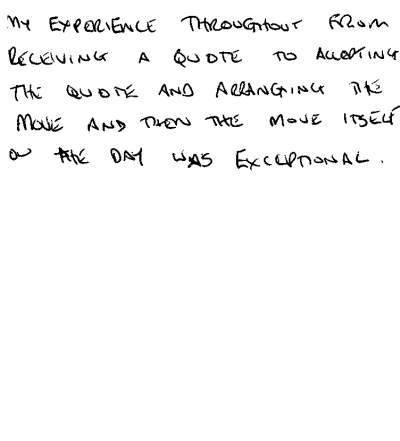 MY EXPERIENCE THROUGHOUT FROM
RECEIVING A QUOTE TO ACCEPTING
THE QUOTE AND ARRANGING THE
MOVE AND THEN THE MOVE ITSELF
ON THE DAY WAS EXCEPTIONAL.